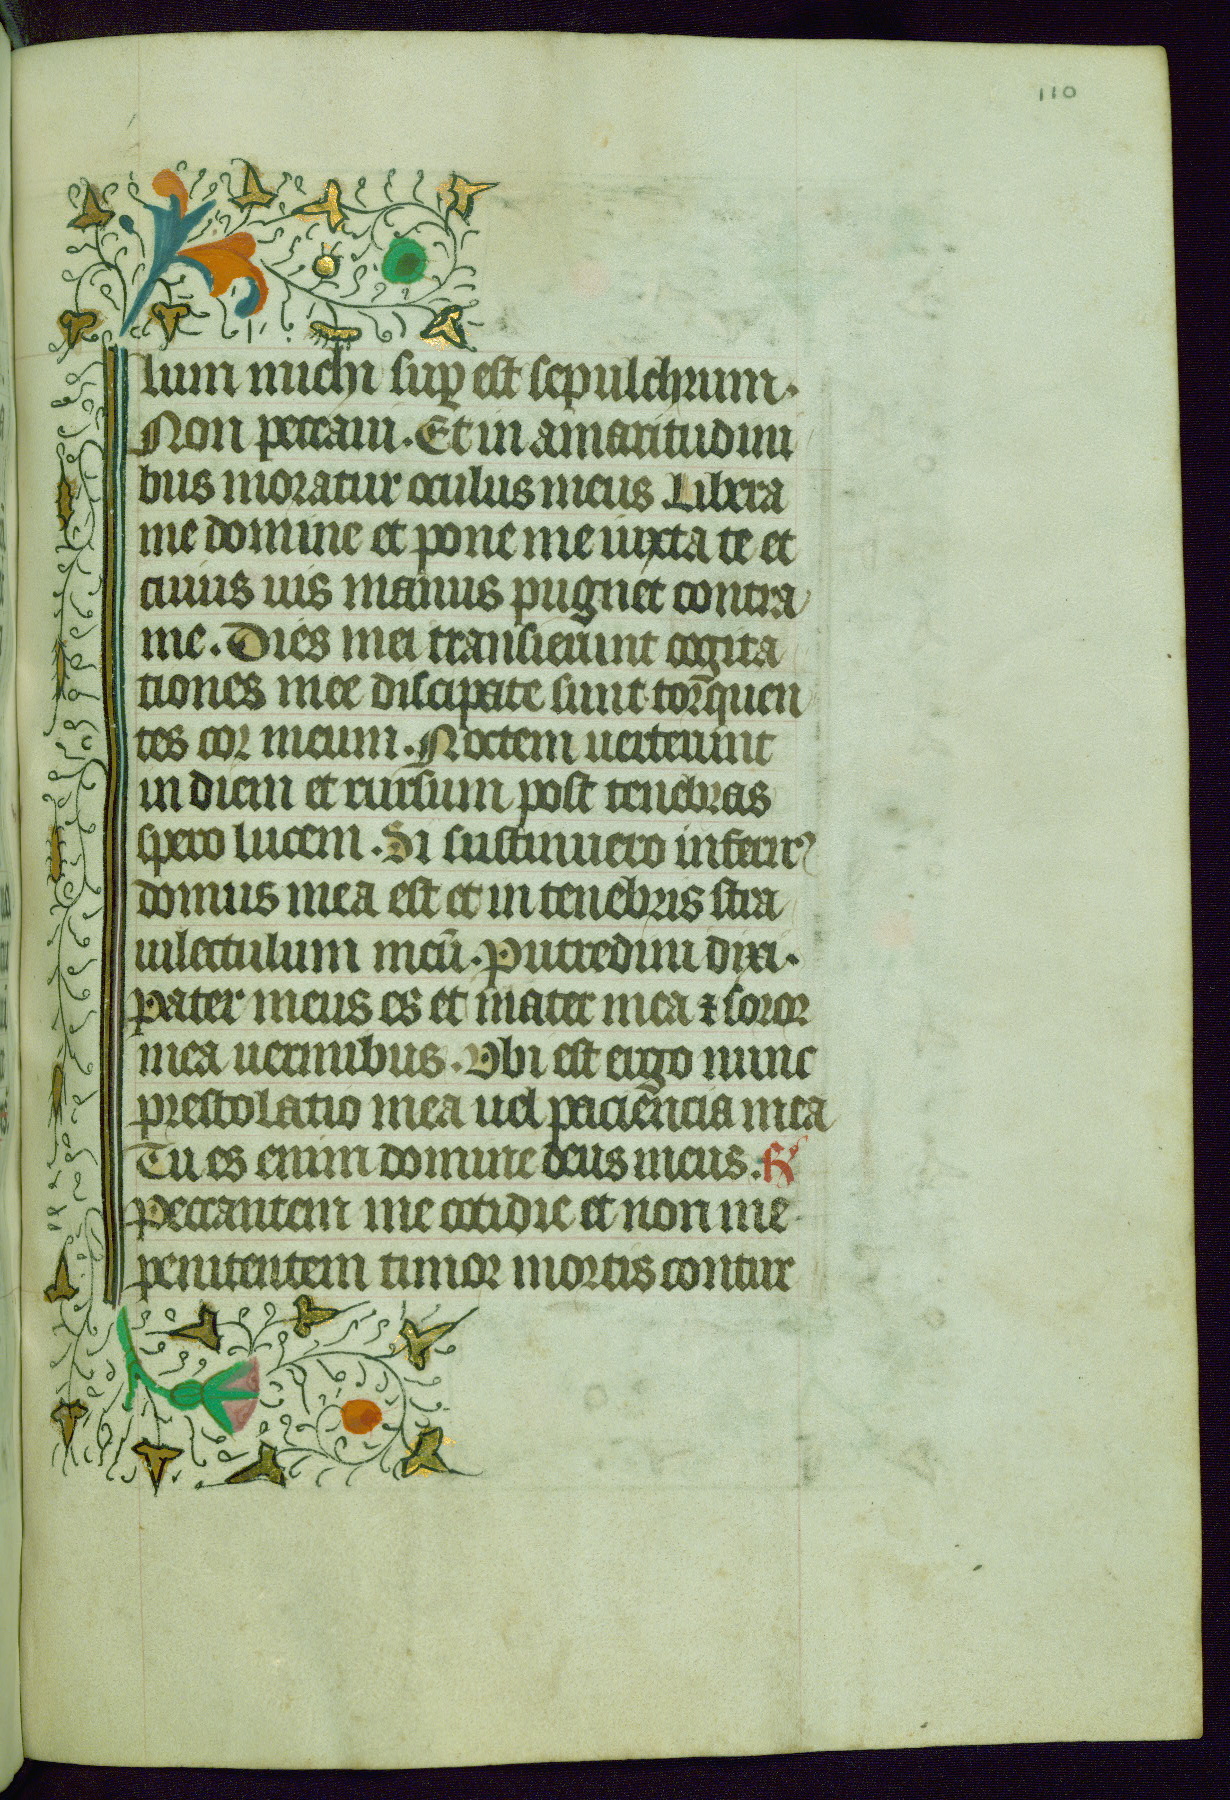 110
lum michi suꝑ est sepulchrum.
Non peccaui. Et in amaritudini
bus moratur oculus meus Libera
me domine et pone me iuxta te et
cuius uis manus pugnet contra
me. Dies mei transierunt cogita
tiones mee discipate sunt torquen
tes cor meum. Noctem uerterunt
in diem et rursum post tenebras
spero lucem. Si sustinuero infernꝰ
domus mea est et in tenebris stra
ui lectulum meū. Putredini dixi.
pater meus es et mater mea ⁊ soror
mea uermibus. Vbi est ergo nunc
prestolatio mea uel paciencia mea
Tu es enim domine deus meus. R̷
Peccantem me cotidie et non me
penitentem timor mortis contur